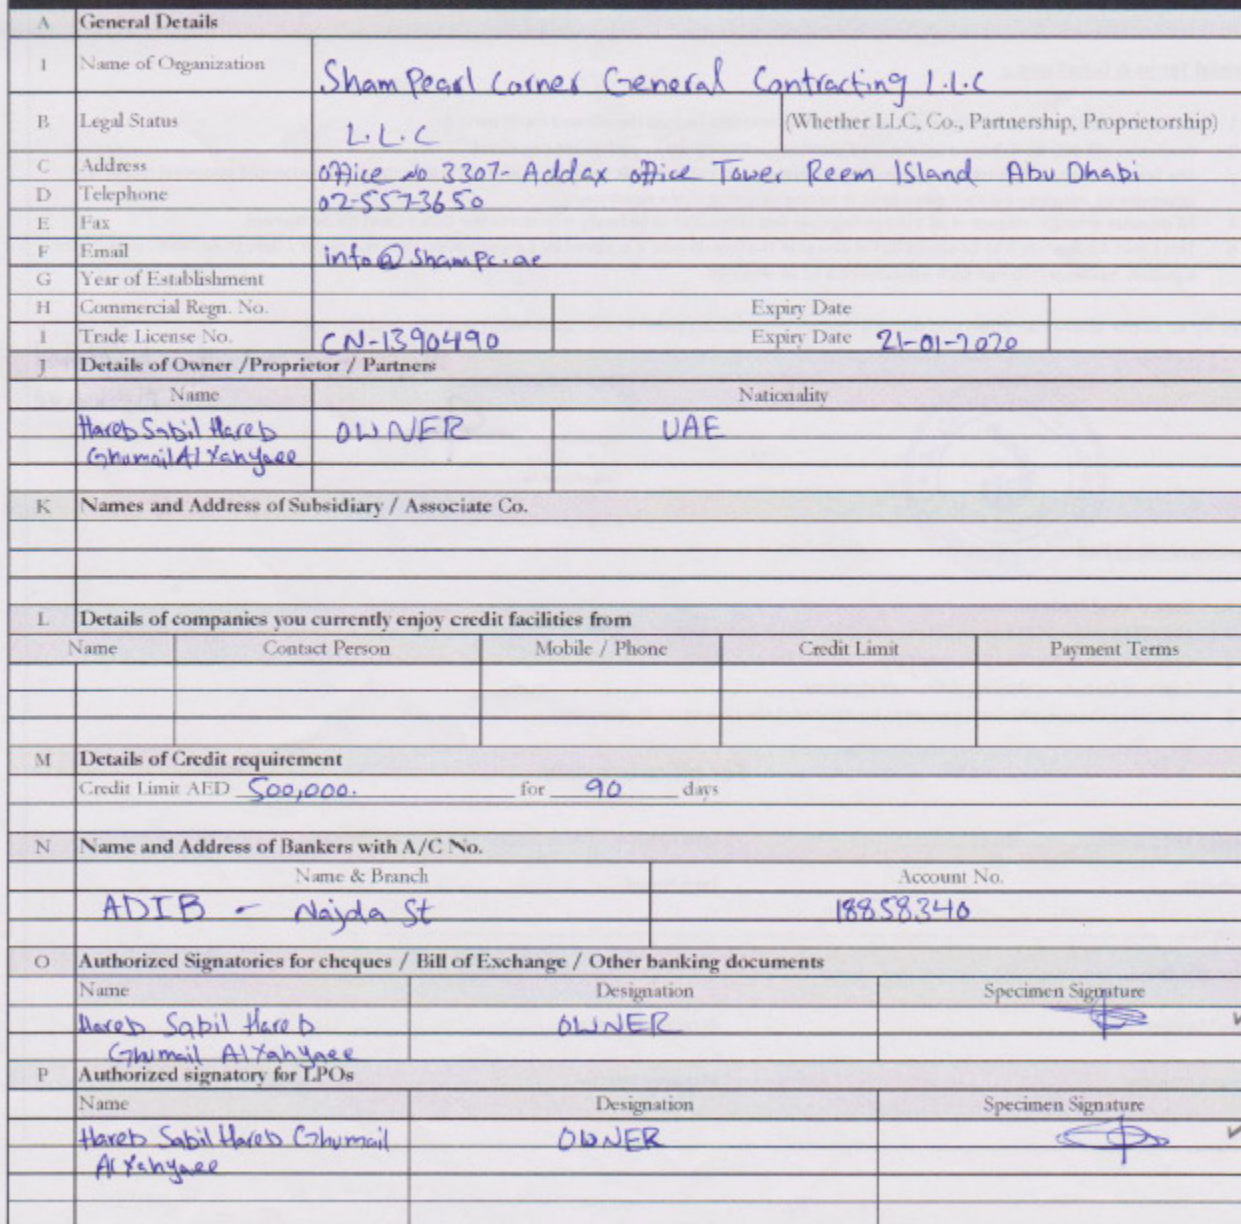 A General Details
1 Name of Organization Sham Pearl Corner General Contracting L.L.C
B Legal Status L.L.C (Whether LLC, Co., Partnership, Proprietorship)
C Address office no 3307- Addax office Tower Reem Island Abu Dhabi
D Telephone 02-5573650
E Fax
F Email info@shampc.ae
G Year of Establishment
H Commercial Regn. No. Expiry Date
I Trade License No. CN-1390490 Expiry Date 21-01-2020
J Details of Owner /Proprietor / Partners
Name Nationality
Hareb Sabil Hareb OWNER UAE
Ghumail Al Yahyaee
K Names and Address of Subsidiary / Associate Co.
L Details of companies you currently enjoy credit facilities from
Name Contact Person Mobile / Phone Credit Limit Payment Terms
M Details of Credit requirement
Credit Limit AED 500,000. for 90 days
N Name and Address of Bankers with A/C No.
Name & Branch Account No.
ADIB - Najda St 18858340
O Authorized Signatories for cheques / Bill of Exchange / Other banking documents
Name Designation Specimen Signature
Hareb Sabil Hareb OWNER
Ghumail Al Yahyaee
P Authorized signatory for LPOs
Name Designation Specimen Signature
Hareb Sabil Hareb Ghumail OWNER
Al Yahyaee